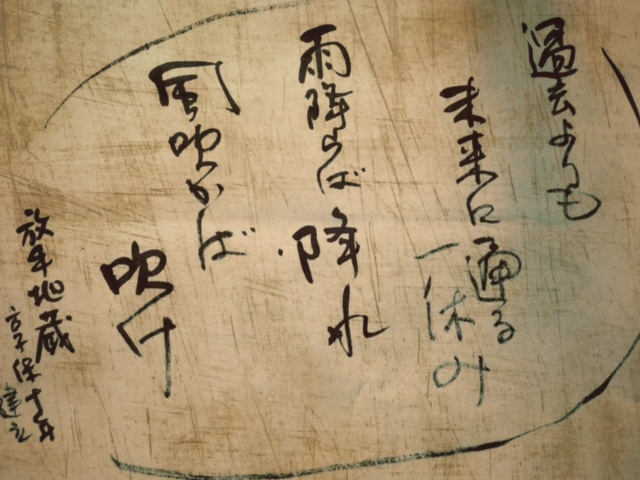 過去よりも
未来に通る
一休み
雨降らば降れ
風吹かば
吹け
放牛地蔵
享保十年
建立